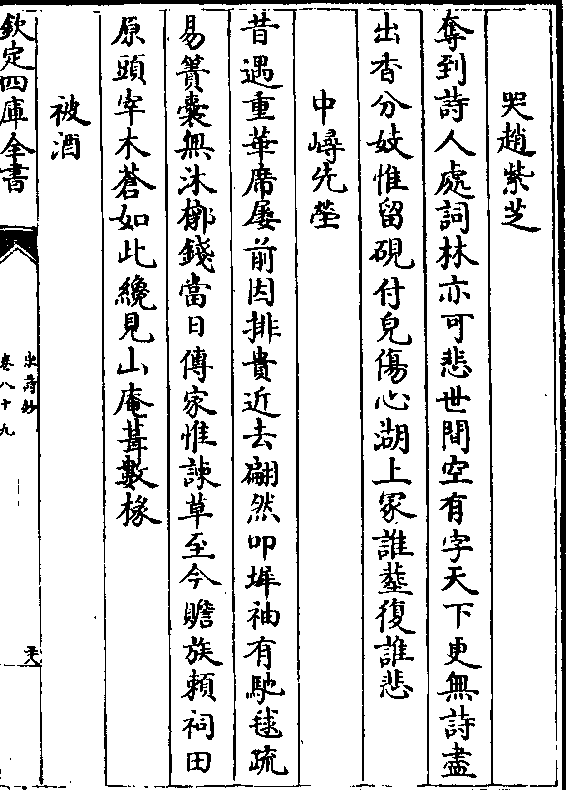 哭趙紫芝
奪到詩人處詞林亦可悲世間空有字天下更無詩盡
出香分妓惟留硯付兒傷心湖上冢誰葬復誰悲
中嶹先塋
昔遇重華席屡前因排貴近去翩然叩墀袖有馳毬疏
易簀囊無沐槨錢當日傳家惟諫草至今贍族賴祠田
原頭宰木蒼如此纔見山庵葺數椽
被酒
欽定四庫全書
宋詩鈔
卷八十九